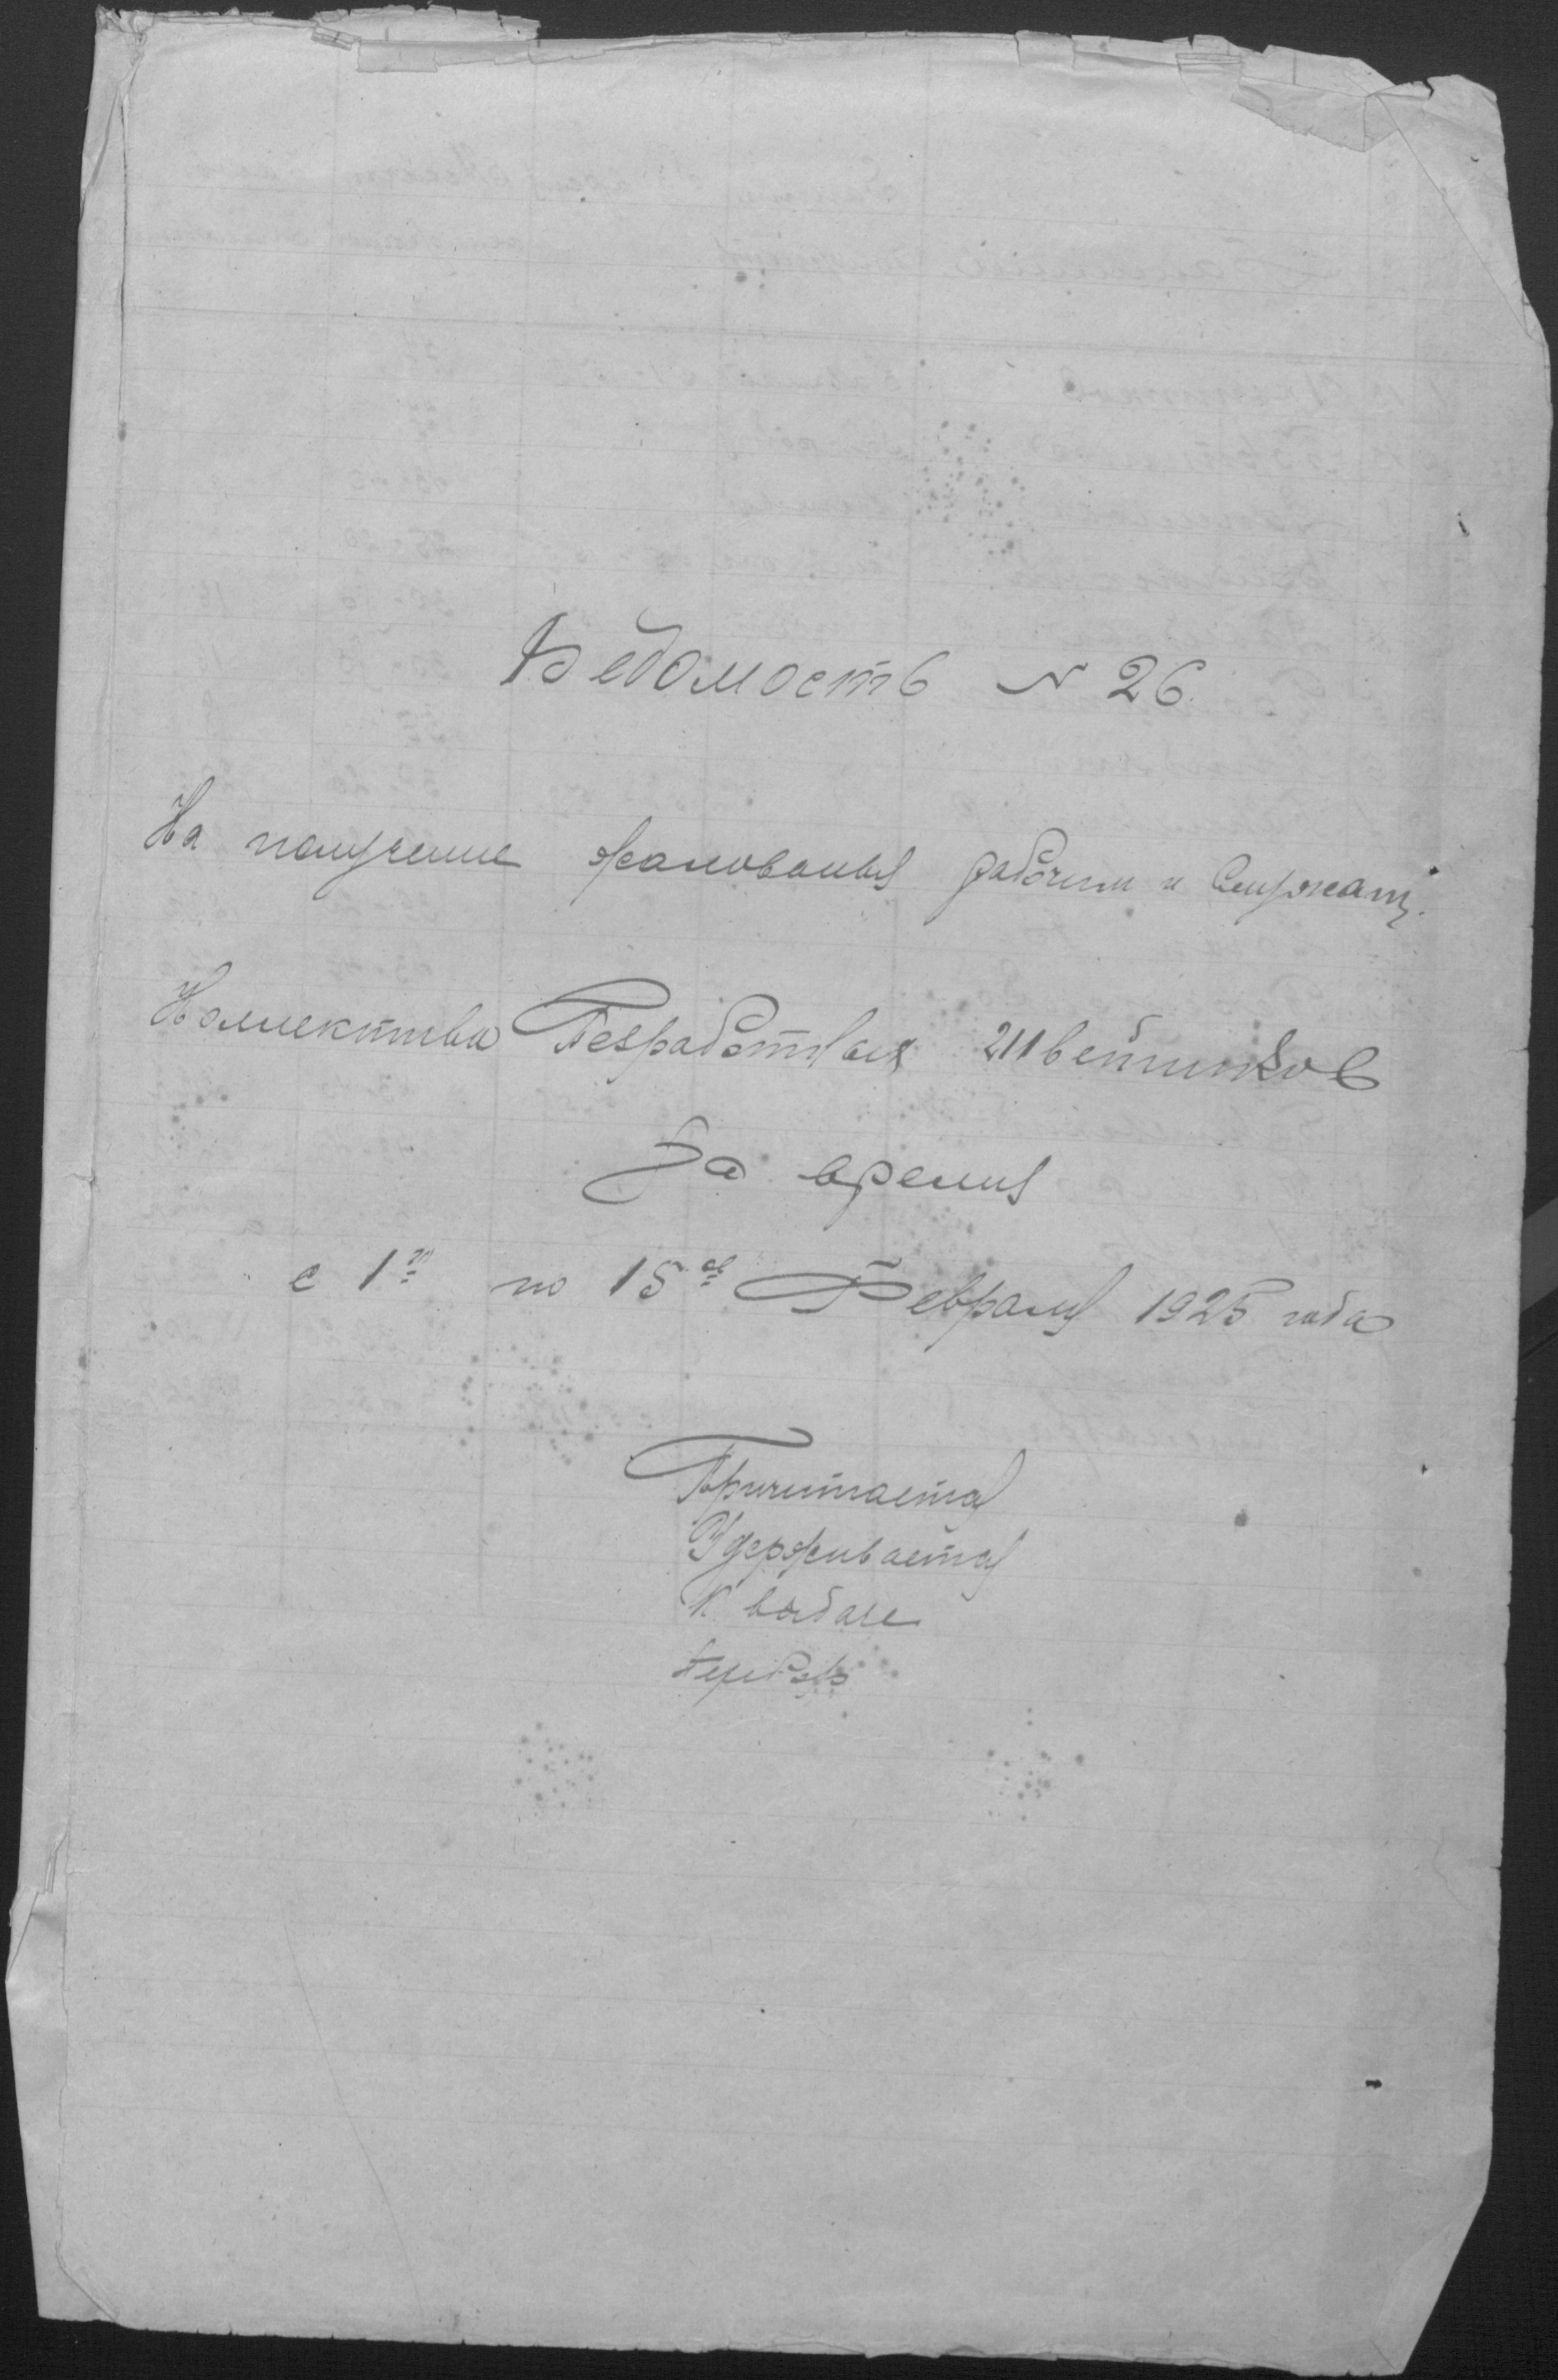 Ведомость № 26.
На получение жалования рабочим и Служащ.
Коллектива Безработных Швейников
За время
с 1го по 15ое Февраля 1925 года
Причитается
Удерживается
К выдаче